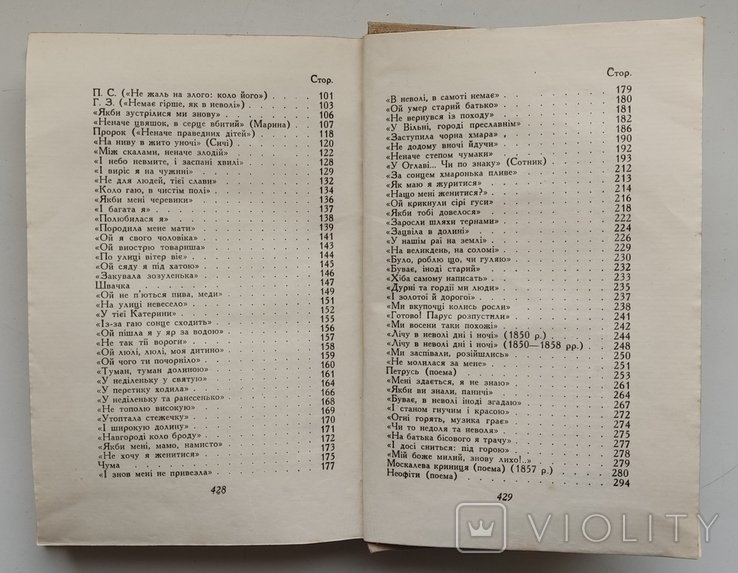 Стор.
П. С. («Не жаль на злого: коло його») . . . . 101
Г. З. («Немає гірше, як в неволі») . . . . 103
«Якби зустрілися ми знову» . . . . 106
«Неначе цвяшок, в серце вбитий» (Марина) . . . . 107
Пророк («Неначе праведних дітей») . . . . 118
«На ниву в жито уночі» (Сичі) . . . . 120
«Між скалами, неначе злодій» . . . . 122
«І небо невмите, і заспані хвилі» . . . . 128
«І виріс я на чужині» . . . . 129
«Не для людей, тієї слави» . . . . 132
«Коло гаю, в чистім полі» . . . . 134
«Якби мені черевики» . . . . 136
«І багата я» . . . . 137
«Полюбилася я» . . . . 138
«Породила мене мати» . . . . 139
«Ой я свого чоловіка» . . . . 141
«Ой виострю товариша» . . . . 143
«По улиці вітер віє» . . . . 144
«Ой сяду я під хатою» . . . . 145
«Закувала зозуленька» . . . . 146
Швачка . . . . 147
«Ой не п'ються пива, меди» . . . . 149
«На улиці невесело» . . . . 151
«У тієї Катерини» . . . . 152
«Із-за гаю сонце сходить» . . . . 155
«Ой пішла я у яр за водою» . . . . 156
«Не так тії вороги» . . . . 157
«Ой люлі, люлі, моя дитино» . . . . 158
«Ой чого ти почорніло» . . . . 159
«Туман, туман, долиною» . . . . 160
«У неділеньку у святую» . . . . 161
«У перетику ходила» . . . . 164
«У неділеньку та ранесенько» . . . . 166
«Не тополю високую» . . . . 168
«Утоптала стежечку» . . . . 169
«І широкую долину» . . . . 170
«Навгороді коло броду» . . . . 171
«Якби мені, мамо, намисто» . . . . 172
«Не хочу я женитися» . . . . 173
Чума . . . . 175
«І знов мені не привезла» . . . . 177
428
Стор.
«В неволі, в самоті немає» . . . . 179
«Ой умер старий батько» . . . . 180
«Не вернувся із походу» . . . . 181
«У Вільні, городі преславнім» . . . . 182
«Заступила чорна хмара» . . . . 186
«Не додому вночі йдучи» . . . . 190
«Неначе степом чумаки» . . . . 192
«У Оглаві... Чи по знаку» (Сотник) . . . . 193
«За сонцем хмаронька пливе» . . . . 212
«Як маю я журитися» . . . . 213
«Нащо мені женитися?» . . . . 214
«Ой крикнули сірі гуси» . . . . 216
«Якби тобі довелося» . . . . 218
«Заросли шляхи тернами» . . . . 222
«Зацвіла в долині» . . . . 224
«У нашім раї на землі» . . . . 226
«На великдень, на соломі» . . . . 229
«Було, роблю що, чи гуляю» . . . . 230
«Буває, іноді старий» . . . . 232
«Хіба самому написать» . . . . 233
«Дурні та гордії ми люди» . . . . 235
«І золотої й дорогої» . . . . 237
«Ми вкупочці колись росли» . . . . 238
«Готово! Парус розпустили» . . . . 241
«Ми восени таки похожі» . . . . 242
«Лічу в неволі дні і ночі» (1850 р.) . . . . 244
«Лічу в неволі дні і ночі» (1850—1858 рр.) . . . . 248
«Ми заспівали, розійшлись» . . . . 250
«Не молилася за мене» . . . . 251
Петрусь (поема) . . . . 253
«Мені здається, я не знаю» . . . . 261
«Якби ви знали, паничі» . . . . 264
«Буває, в неволі іноді згадаю» . . . . 267
«І станом гнучим і красою» . . . . 272
«Огні горять, музика грає» . . . . 274
«Чи то недоля та неволя» . . . . 275
«На батька бісового я трачу» . . . . 277
«І досі сниться: під горою» . . . . 278
«Мій боже милий, знову лихо!..» . . . . 279
Москалева криниця (поема) (1857 р.) . . . . 280
Неофіти (поема) . . . . 294
429
VIOLITY